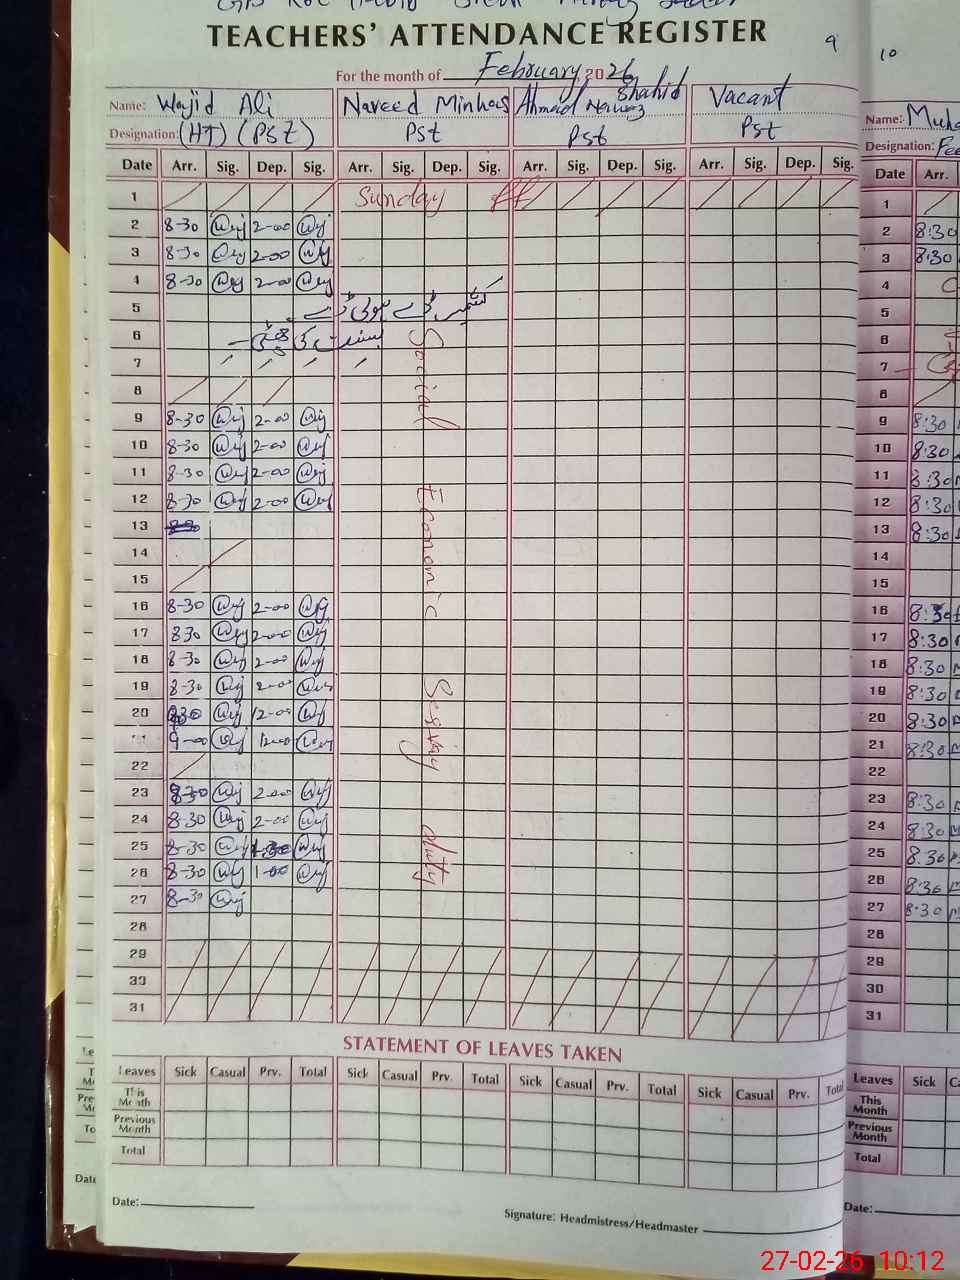 TEACHERS' ATTENDANCE REGISTER
9 10
For the month of February, 2026
Name: Wajid Ali Naveed Minhas Ahmad Nawaz Shahid Vacant
Designation: (HT) (PSt) Pst Pst Pst
Name: Muh
Designation:
Date Arr. Sig. Dep. Sig. Arr. Sig. Dep. Sig. Arr. Sig. Dep. Sig. Arr. Sig. Dep. Sig. Date Arr.
1 Sunday 1
2 8-30 2-00 2 8:30
3 8-30 2-00 3 8:30
4 8-30 2-00 4
5 کشمیر ڈے ہولی ڈے 5
6 بسنت کی چھٹی 6
7 7
8 8
9 8-30 2-00 9 8:30
10 8-30 2-00 10 8:30
11 8-30 2-00 11 8:30
12 8-30 2-00 12 8:30
13 13 8:30
14 14
15 15
16 8-30 2-00 16 8:30
17 8 30 2-00 17 8:30
18 8-30 2-00 18 8:30
19 8-30 2-00 19 8:30
20 12-00 20 8:30
9-00 12-00 21 8:30
22 22
23 8-30 2-00 23 8:30
24 8-30 2-00 24 8:30
25 8-30 25 8:30
26 8-30 1-00 26 8:30
27 8-30 27 8:30
28 28
29 29
30 30
31 31
Social Economic duty
STATEMENT OF LEAVES TAKEN
Leaves Sick Casual Prv. Total Sick Casual Prv. Total Sick Casual Prv. Total Sick Casual Prv. Total Leaves Sick
This Month This Month
Previous Month Previous Month
Total Total
Date: Signature: Headmistress/Headmaster Date:
27-02-26 10:12